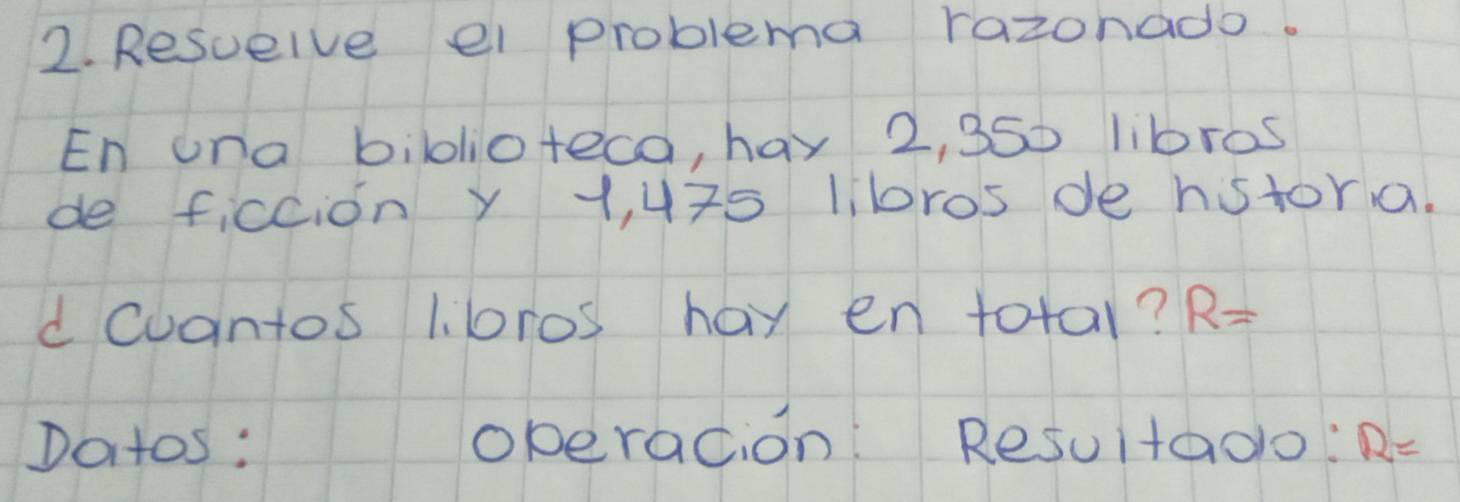 2. Resuelve el problema razonado.
En una biblioteca, hay 2,350 libros
de ficción y 1,475 libros de historia.
¿Cuantos libros hay en total? R=
Datos: Operación: Resultado: R=